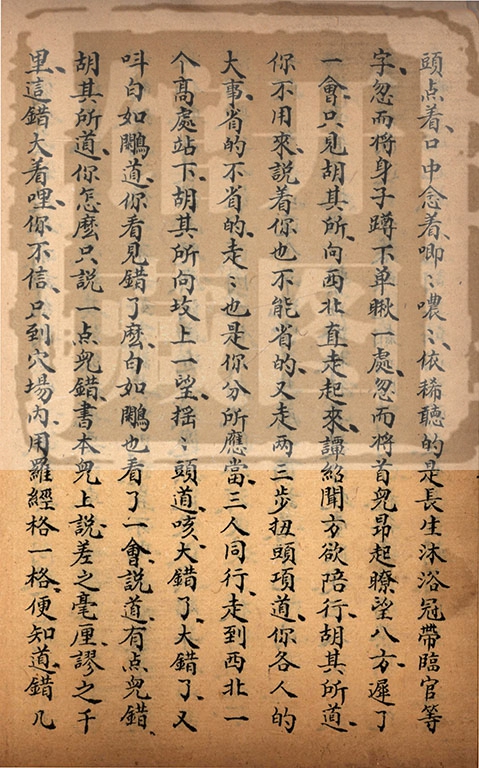 頭点着、口中念着、唧〻噥〻、依稀聽的是長生沐浴冠帶臨官等
字、忽而將身子蹲下、单瞅一處、忽而將首兒昂起、瞭望八方、遲了
一會、只見胡其所、向西北直走起來、譚紹聞方欲陪行、胡其所道、
你不用來、說着你也不能省的、又走两三步扭頭項道、你各人的
大事、省的不省的、走〻也是你分所應當、三人同行、走到西北一
个高處站下、胡其所向坟上一望、揺〻頭道、咳、大錯了、大錯了、又
呌白如鷴道、你看見錯了麽、白如鷴也看了一會、說道、有点兒錯、
胡其所道、你怎麽只說一点兒錯、書本兒上說、差之毫厘、謬之千
里、這錯大着哩、你不信、只到穴塲內、用羅經格一格、便知道錯几